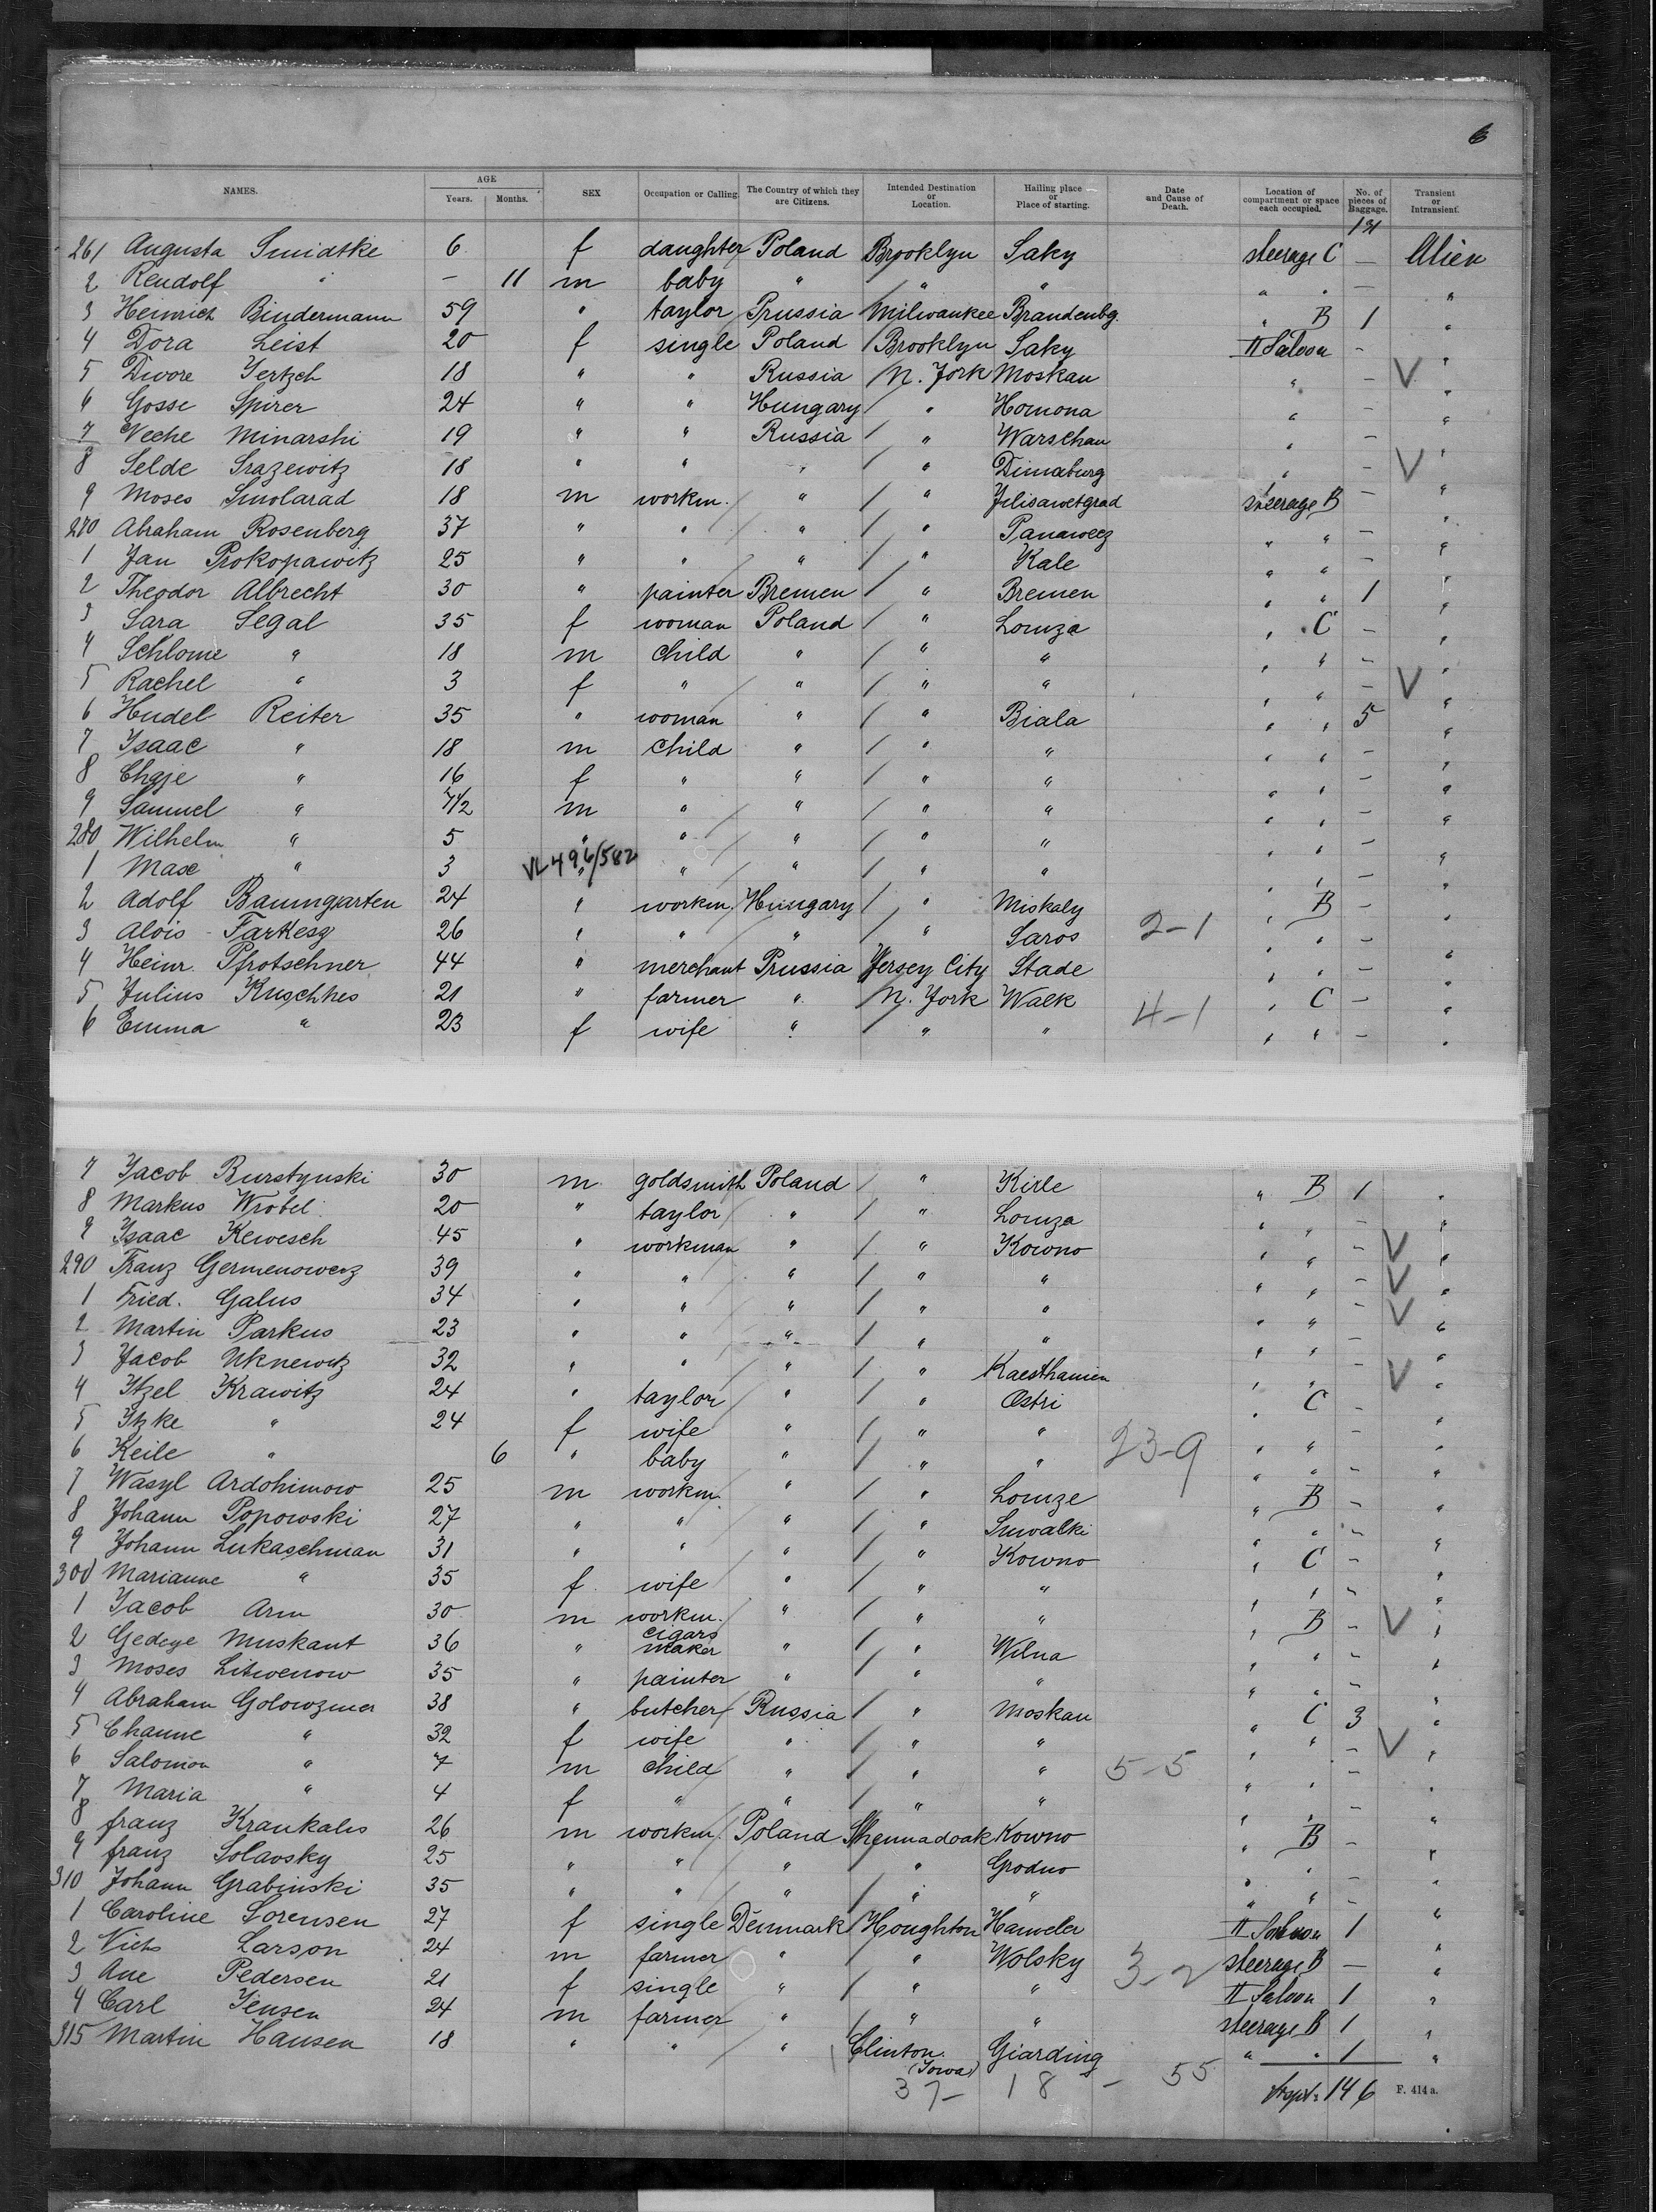 6
NAMES. AGE Years. Months. SEX Occupation or Calling. The Country of which they are Citizens. Intended Destination or Location. Hailing place or Place of starting. Date and Cause of Death. Location of compartment or space each occupied. No. of pieces of Baggage. Transient or Intransient.
131
261 Augusta Smidtke 6 f daughter Poland Brooklyn Saky steerage C — Alien
2 Rendolf " — 11 m baby " " " " " — "
3 Heinrich Bindermann 59 " taylor Prussia Milwaukee Brandenbg. " B 1 "
4 Dora Leist 20 f single Poland Brooklyn Saky II Saloon - "
5 Dwore Jertzch 18 " " Russia N. York Moskau " - V "
6 Gosse Spirer 24 " " Hungary " Homona " - "
7 Veche Minarshi 19 " " Russia " Warschau " - "
8 Selde Srazewitz 18 " " " " Dimaburg " - V "
9 Moses Smolarad 18 m workm. " " Jelisawetgrad steerage B - "
270 Abraham Rosenberg 37 " " " " " " - "
1 Jan Prokopawitz 25 " " " " Kale " " - "
2 Theodor Albrecht 30 " painter Bremen " Bremen " " 1 "
3 Sara Segal 35 f woman Poland " Lomza " C - "
4 Schlome " 18 m child " " " " " - "
5 Rachel " 3 f " " " " " " - V "
6 Hudel Reiter 35 " woman " " Biala " " 5 "
7 Isaac " 18 m child " " " " " - "
8 Chaje " 16 f " " " " " " - "
9 Samuel " 7 1/2 m " " " " " " - "
280 Wilhelm " 5 " " " " " " " - "
1 Max " 3 VL 496/582 " " " " " " - "
2 Adolf Baumgarten 24 " workm. Hungary " Miskaly " B - "
3 Alois Farkesz 26 " " " " Saros 2-1 " " - "
4 Heinr. Pfrotschner 44 " merchant Prussia Jersey City Stade " " - "
5 Julius Kuschkes 21 " farmer " N. York Walk " C - "
6 Emma " 23 f wife " " " 4-1 " " - "
7 Jacob Burstynski 30 m goldsmith Poland " Kirle " B 1 "
8 Markus Wrobel 20 " taylor " " Lomza " " - "
9 Isaac Kewesch 45 " workman " " Kowno " " - V "
290 Franz Germenowerz 39 " " " " " " " - V "
1 Fried. Galus 34 " " " " " " " - V "
2 Martin Parkus 23 " " " " " " " - "
3 Jacob Uknewitz 32 " " " " Kaesthanien " " - V "
4 Itzel Krawitz 24 " taylor " " Ostri " C - "
5 Itzke " 24 f wife " " " " " - "
6 Keile " 6 " baby " " " 23-9 " " - "
7 Wasyl Ardohimow 25 m workm. " " Lomze " B - "
8 Johann Popowski 27 " " " " Suwalki " " - "
9 Johann Lukaschman 31 " " " " Kowno " C - "
300 Marianne " 35 f wife " " " " " - "
1 Jacob Arm 30 m workm. " " " " B - V "
2 Gedeye Muskant 36 " cigars maker " " Wilna " " - "
3 Moses Litwenow 35 " painter " " " " " - "
4 Abraham Golowziner 38 " butcher Russia " Moskau " C 3 "
5 Channe " 32 f wife " " " " " - V "
6 Salomon " 7 m child " " " 5-5 " " - "
7 Maria " 4 f " " " " " " - "
8 franz Krankalis 26 m workm. Poland Shennadoak Kowno " B - "
9 franz Solavsky 25 " " " " Grodno " " - "
310 Johann Grabinski 35 " " " " " " " - "
1 Caroline Sorensen 27 f single Denmark Houghton Hameler II Saloon 1 "
2 Larson 24 m farmer " " Wolsky steerage B — "
3 Ane Pedersen 21 f single " " " 3-2 II Saloon 1 "
4 Carl Jensen 24 m farmer " " " steerage B 1 "
315 Martin Hansen 18 " " " Clinton (Iowa) Giarding " " 1 "
37 - 18 - 55 146 F. 414 a.